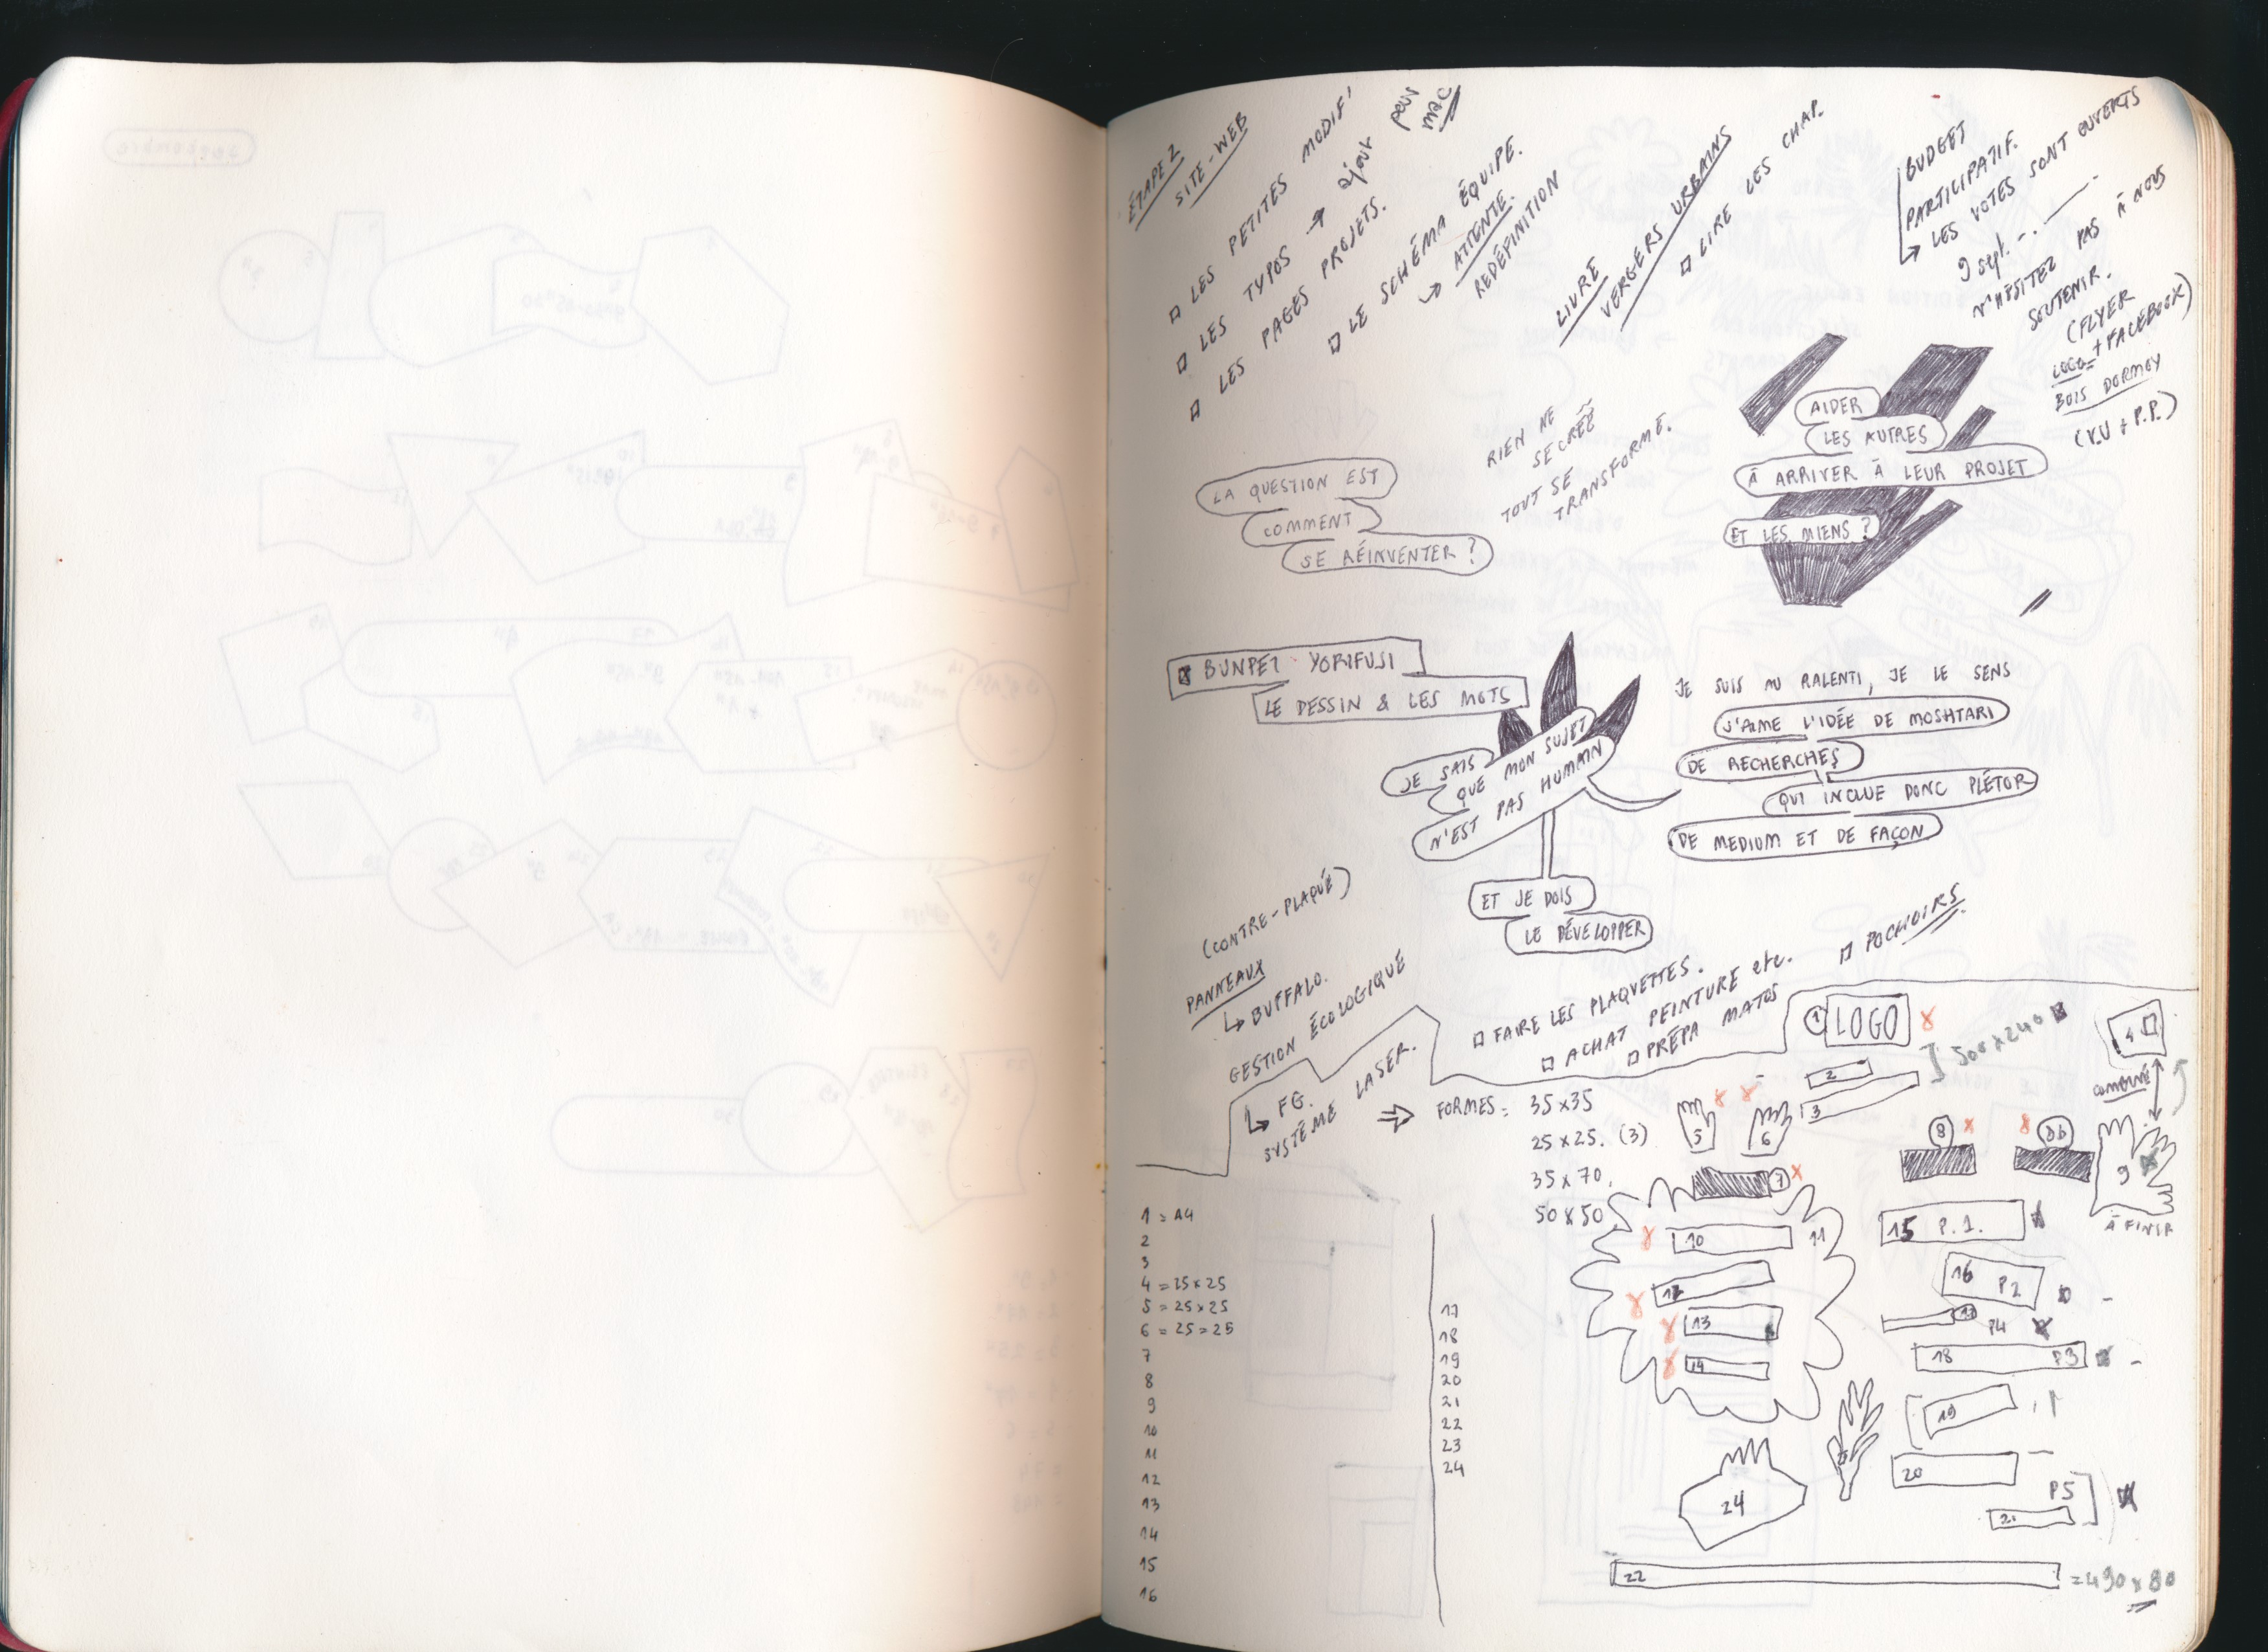 ÉTAPE 2
SITE-WEB
LES PETITES MODIF'
LES TYPOS → ajout pour mac
LES PAGES PROJETS.
LE SCHÉMA ÉQUIPE.
↳ ATTENTE.
REDÉFINITION
LIVRE
VERGERS URBAINS
LIRE LES CHAP.
BUDGET
PARTICIPATIF.
↳ LES VOTES SONT OUVERTS
9 sept.
N'HÉSITEZ PAS À NOUS
SOUTENIR.
(FLYER
+ FACEBOOK)
LOGO =
BOIS DORMOY
(V.U + P.P.)
LA QUESTION EST
COMMENT
SE RÉINVENTER ?
RIEN NE
SE CRÉE
TOUT SE
TRANSFORME.
AIDER
LES AUTRES
À ARRIVER À LEUR PROJET
ET LES MIENS ?
BUNPEI YORIFUSI
LE DESSIN & LES MOTS
JE SAIS
QUE MON SUJET
N'EST PAS HUMAIN
ET JE DOIS
LE DÉVELOPPER
JE SUIS AU RALENTI, JE LE SENS
J'AIME L'IDÉE DE MOSHTARI
DE RECHERCHES
QUI INCLUE DONC PLÉTOR
DE MEDIUM ET DE FAÇON
(CONTRE-PLAQUÉ)
PANNEAUX
↳ BUFFALO.
GESTION ÉCOLOGIQUE
↳ FG.
SYSTÈME LASER.
FAIRE LES PLAQUETTES.
ACHAT PEINTURE etc.
PRÉPA MATOS
POCHOIRS.
⇒ FORMES = 35x35
25x25. (3)
35x70.
50x50
1 LOGO
500x240
2
3
4
COMBINÉ
5
6
7
8
8b
9
À FINIR
10
11
12
13
14
15 P.1.
16 P2
17
P4
18 P3
19
20
P5
21
24
22
= 490x80
1 = A4
2
3
4 = 25x25
5 = 25x25
6 = 25=25
7
8
9
10
11
12
13
14
15
16
17
18
19
20
21
22
23
24